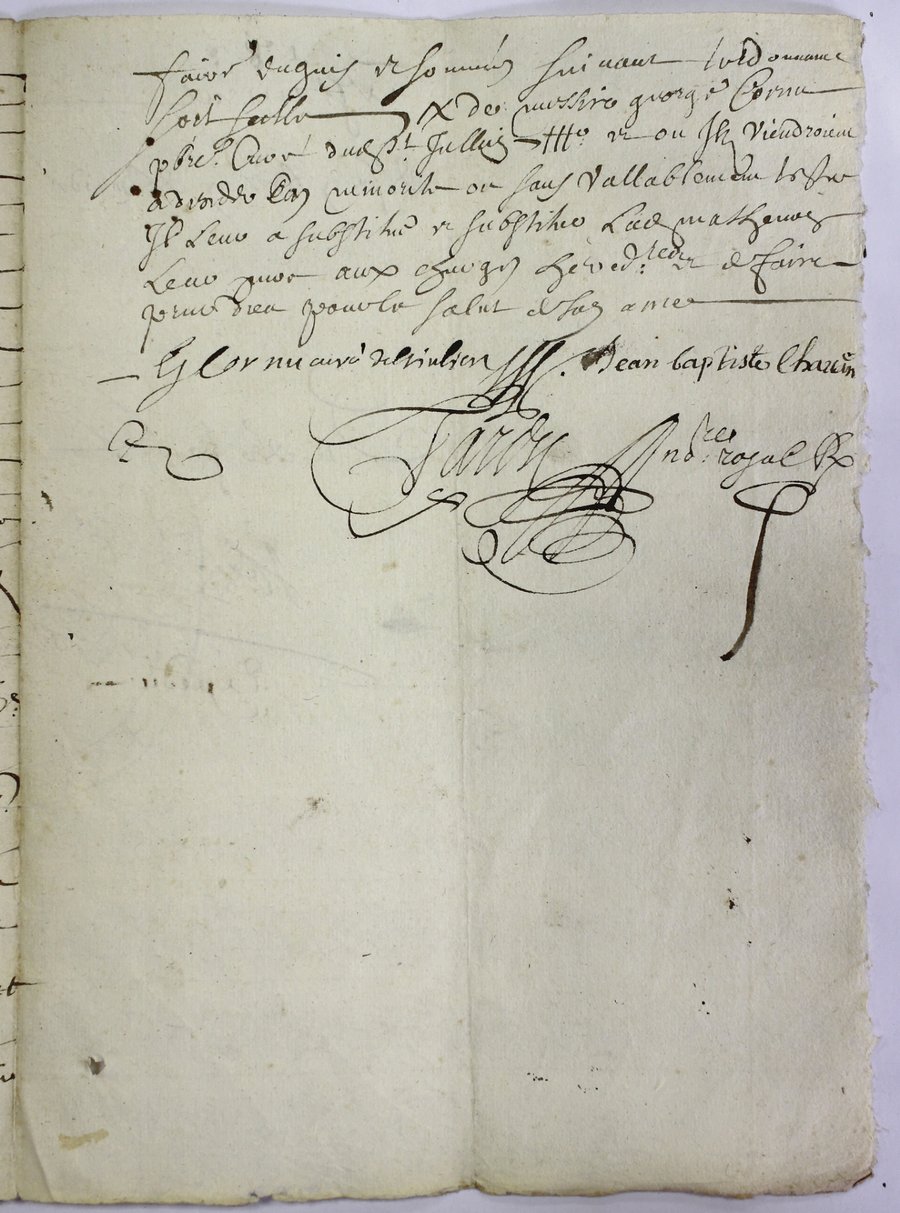 faire enquis et sommés suivant l'ordonnance
soit faitte X de messire george Cornu
pbre Curé dud St Jullien et ou Ilz viendroient
a decedde En minorité ou sans Vallablement tester
Il Leur a substitué et substitue Lad mathenes
Leur mere aux charges et de faire
prier dieu pour le salut de son ame
G Cornu curé de St iulien Jean baptiste Charvin
Tardy no.re royal